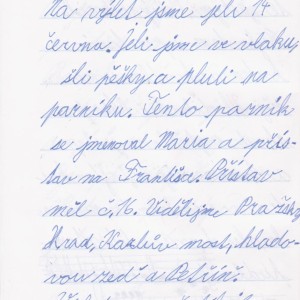 Na výlet jsme jeli 14
června. Jeli jsme ve vlaku,
šli pěšky a pluli na
parníku. Tento parník
se jmenoval Maria a přís-
tav na Františa. Přístav
měl č. 16. Viděli jme Pražský
Hrad, Karlův most, hlado-
vou zeď a Petřín.